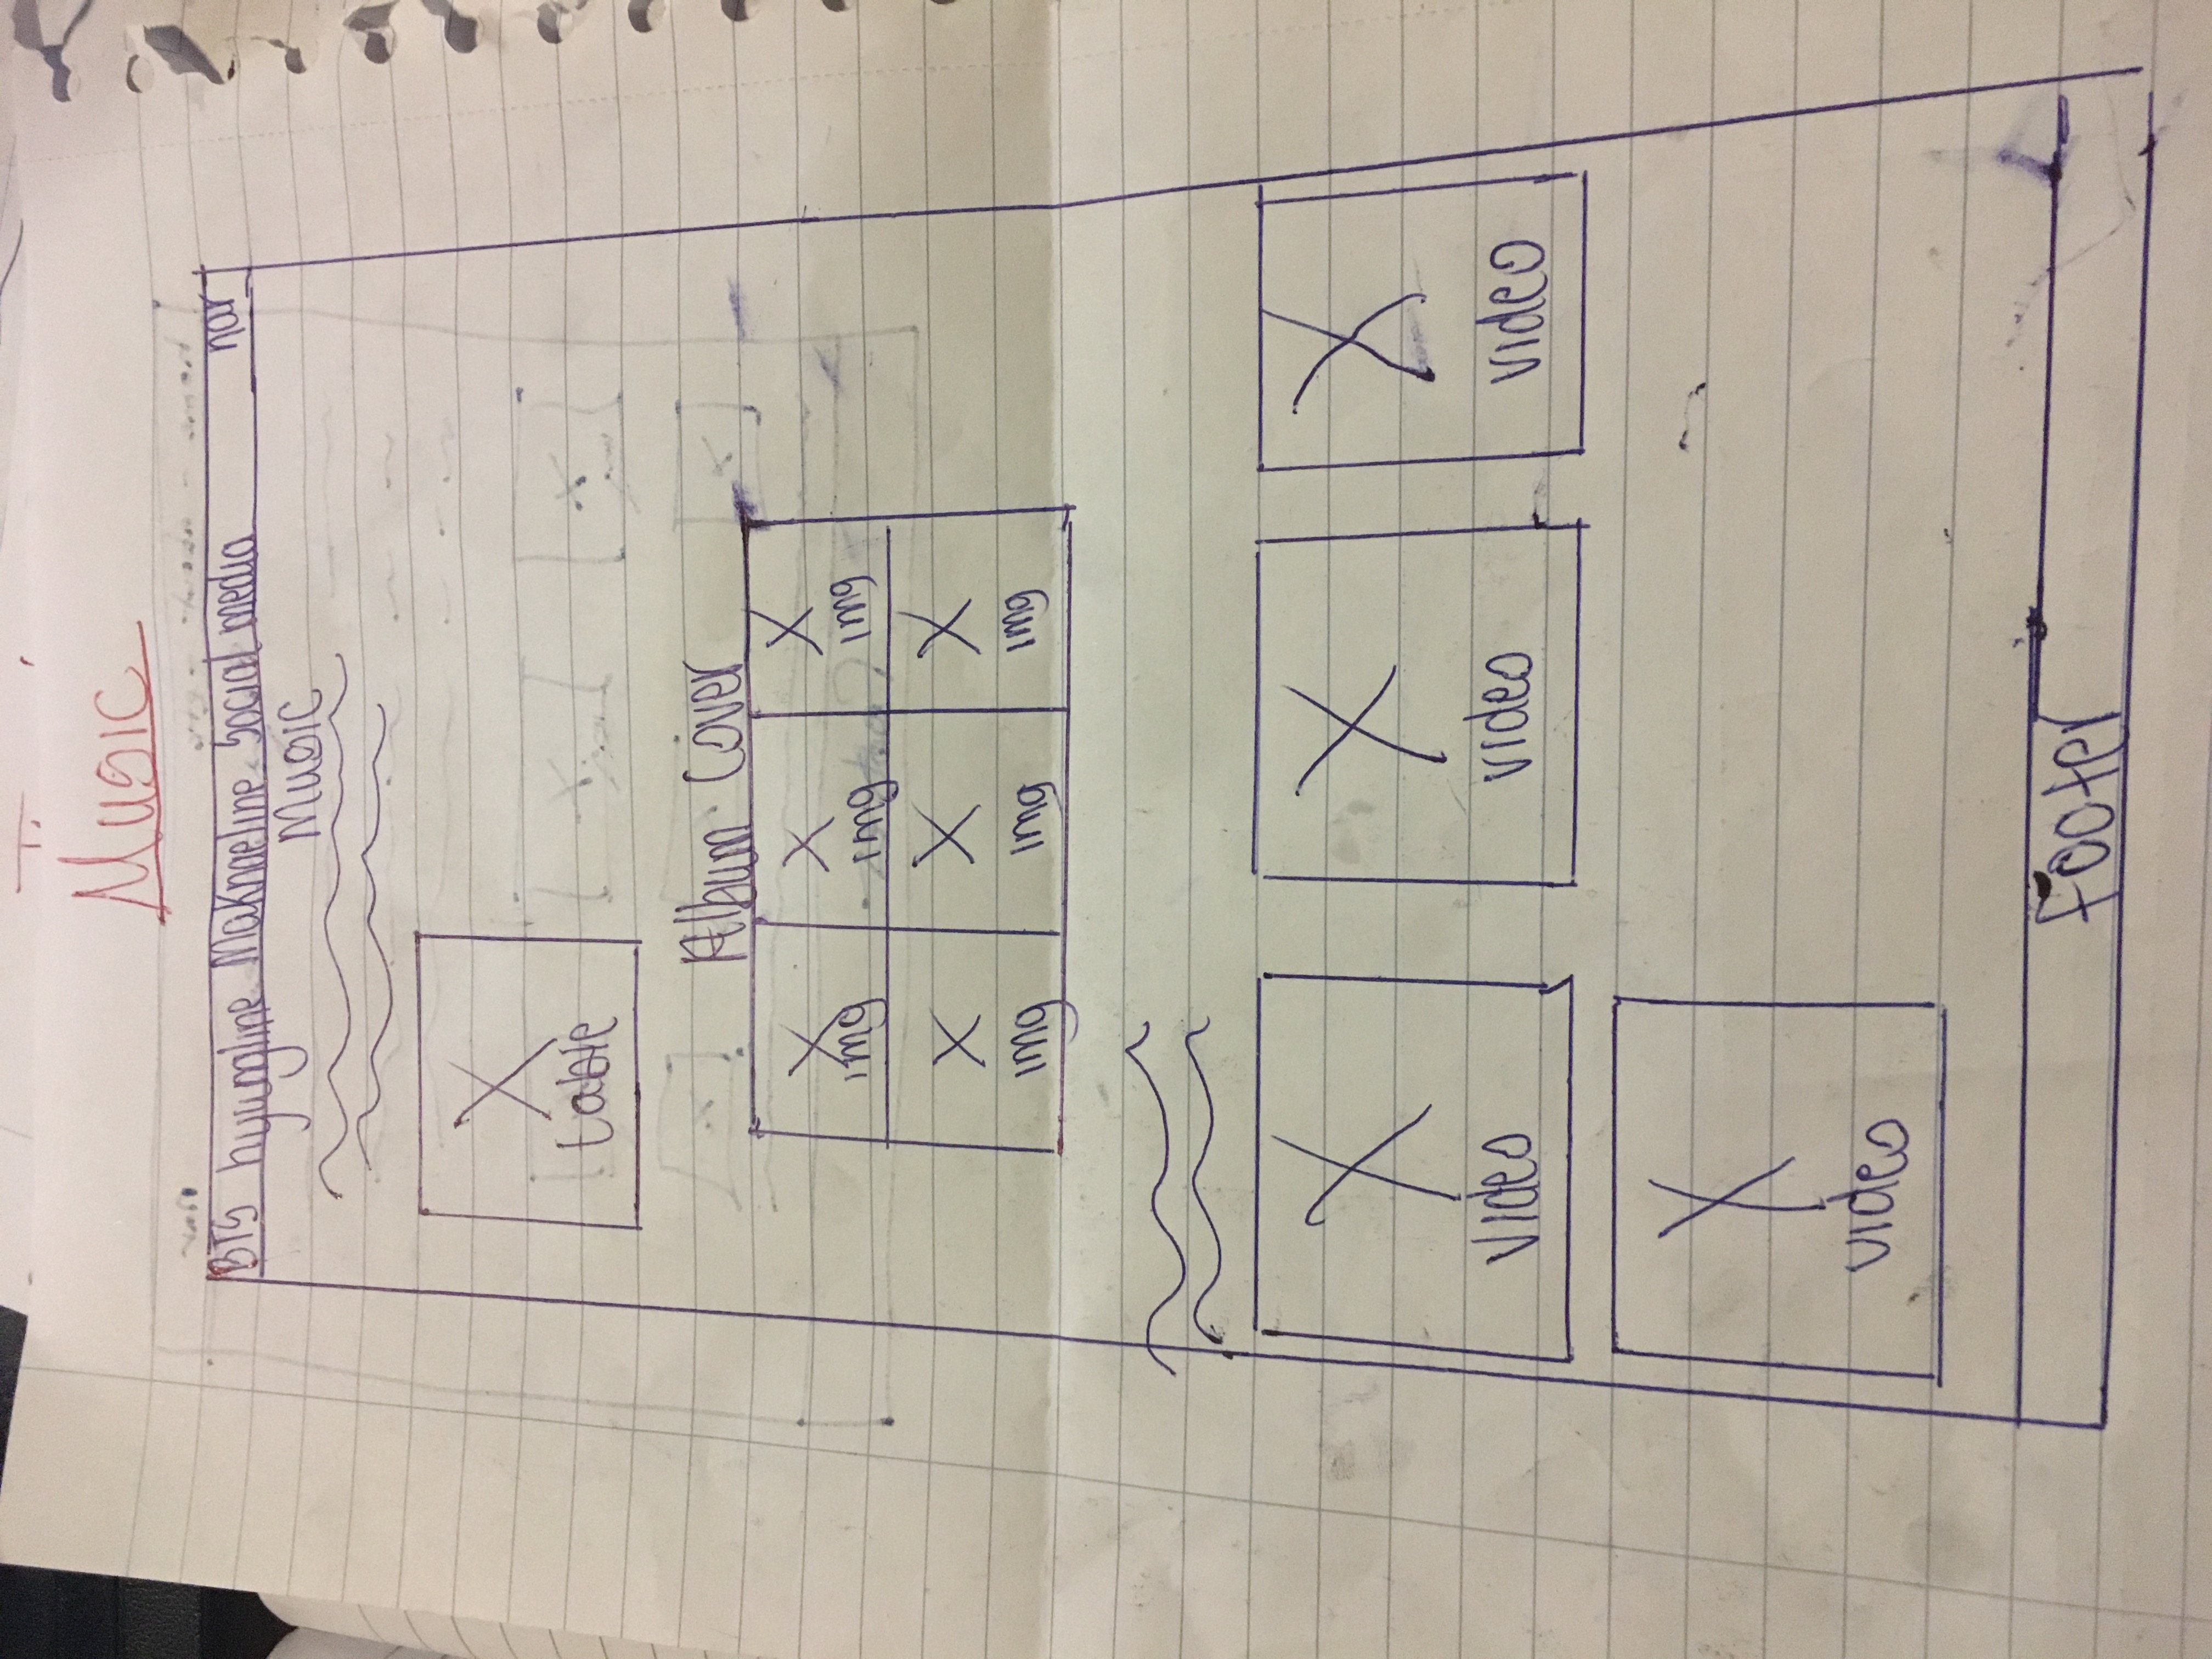 Music
BTS hyungline Maknaeline Social media nar
Music
table
Album Cover
img img img
img img img
video video video
video
Footer